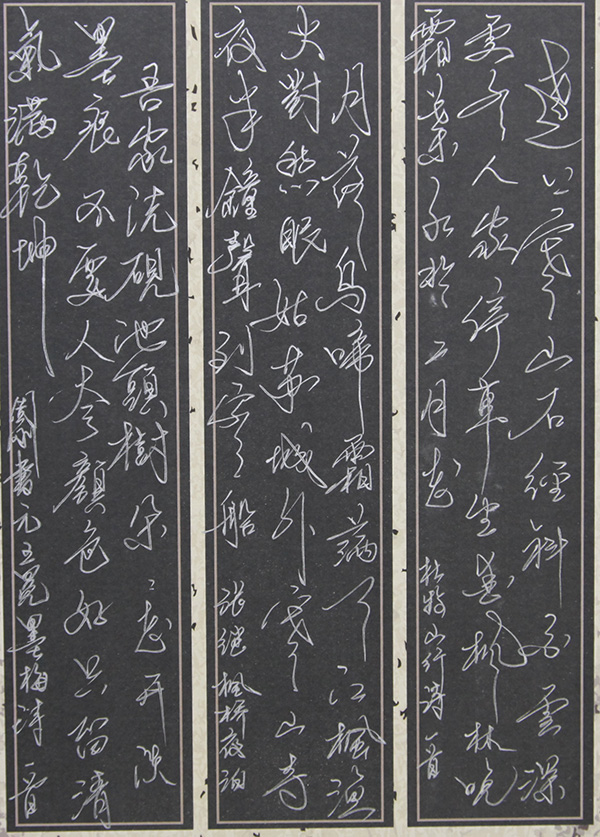 遠上寒山石經斜白雲深
处有人家停車坐爱楓林晚
霜葉红於二月花 杜牧山行诗一首
月落烏啼霜满天江楓漁
火對愁眠姑苏城外寒山寺
夜半鐘聲到客船 张继枫桥夜泊
吾家洗硯池頭樹朵〻花开淡
墨痕不要人夸顏色好只留清
氣滿乾坤 書元王冕墨梅诗一首